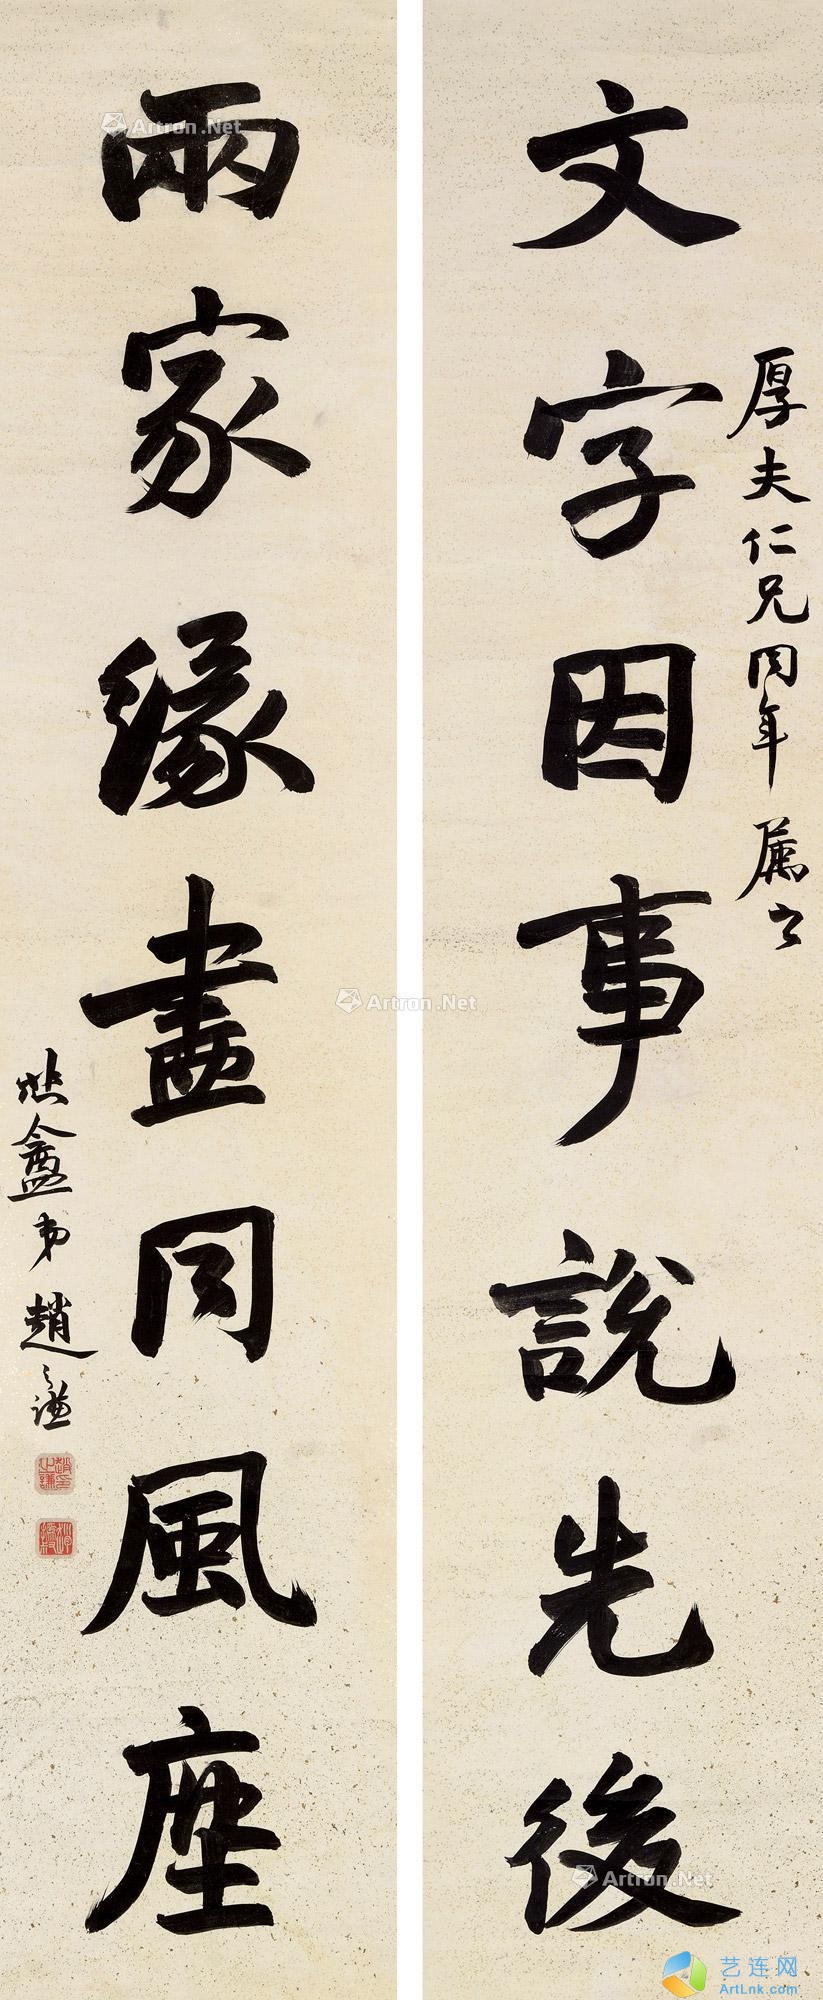 文字因事說先後
厚夫仁兄同年屬書
兩家緣畫同風座
悲盦弟趙之謙
趙之謙印
Artron.Net
Artron.Net
Artron.Net
艺连网
ArtLnk.com